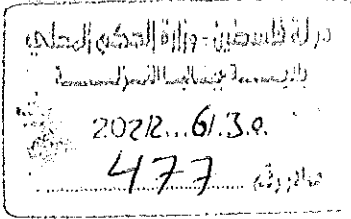 دولة فلسطين - وزارة الحكم المحلي
بلديـــــة
2022...6/.3.0.
صادر رقم 477